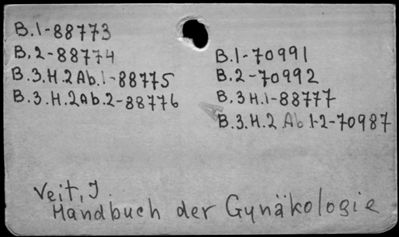 B.1-88773
B.2-88774
B.3.H.2Ab.1-88775
B.3.H.2Ab.2-88776
B.1-70991
B.2-70992
B.3H.1-88777
B.3.H.2 Ab 1-2-70987
Veit, J.
Handbuch der Gynäkologie